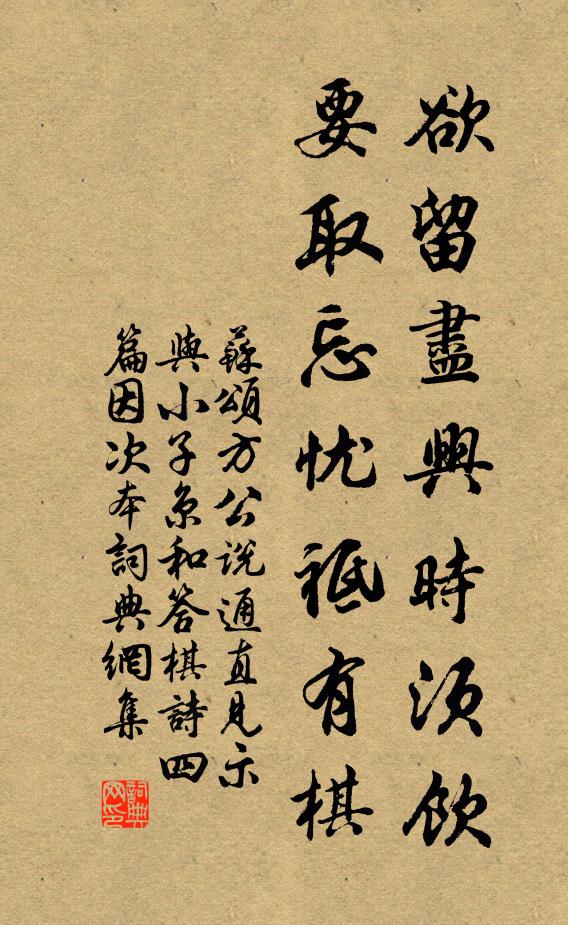 欲留盡興時須飲
要取忘忧祗有棋
蘇頌方公说通直見示
與小子京和答棋詩四
篇因次本詞典網集
詞典
网印